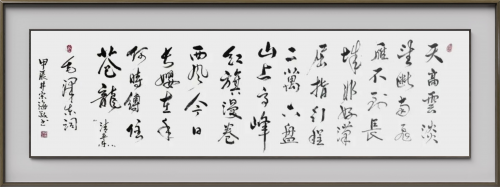 天高雲淡
望斷南飛
雁不到長
城非好漢
屈指行程
二萬六盤
山上高峰
紅旗漫卷
西風今日
長纓在手
何時縛住
蒼龍
毛澤東詞
甲辰